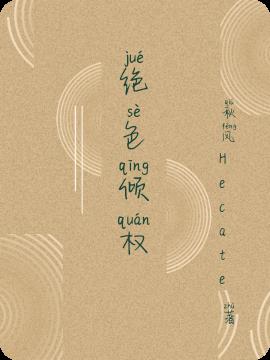 jué
绝
sè
色
qīng
倾
quán
权
秋
fēng
风
Hecate
zhù